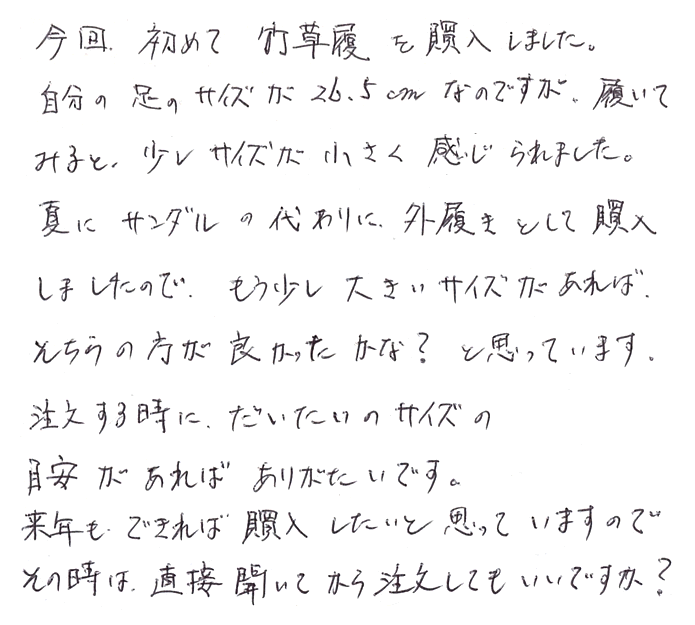 今回、初めて 竹草履 を 購入 しました。
自分の 足の サイズが 26.5cm なのですが、履いて
みると、少し サイズが 小さく 感じ られました。
夏に サンダル の 代わりに、外履き として 購入
しましたので、もう少し 大きい サイズが あれば、
そちらの 方が 良かった かな? と思っています。
注文する時に、だいたいの サイズの
目安 が あれば ありがたいです。
来年も、できれば 購入 したいと 思って いますので
その時は、直接 聞いて から 注文しても いいですか?